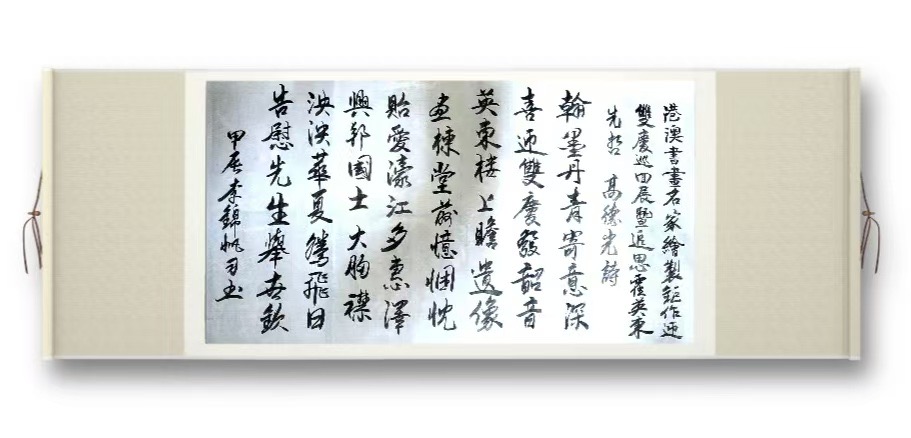 港澳書畫名家繪製鉅作迎
雙慶巡回展暨追思霍英東
先哲 高德光詩
翰墨丹青寄意深
喜迎雙慶發韶音
英東楼上瞻遺像
畫棟堂前憶悃忱
貽愛濠江多惠澤
興邦國士大胸襟
泱泱華夏騰飛日
告慰先生舉世欽
甲辰李錦帆